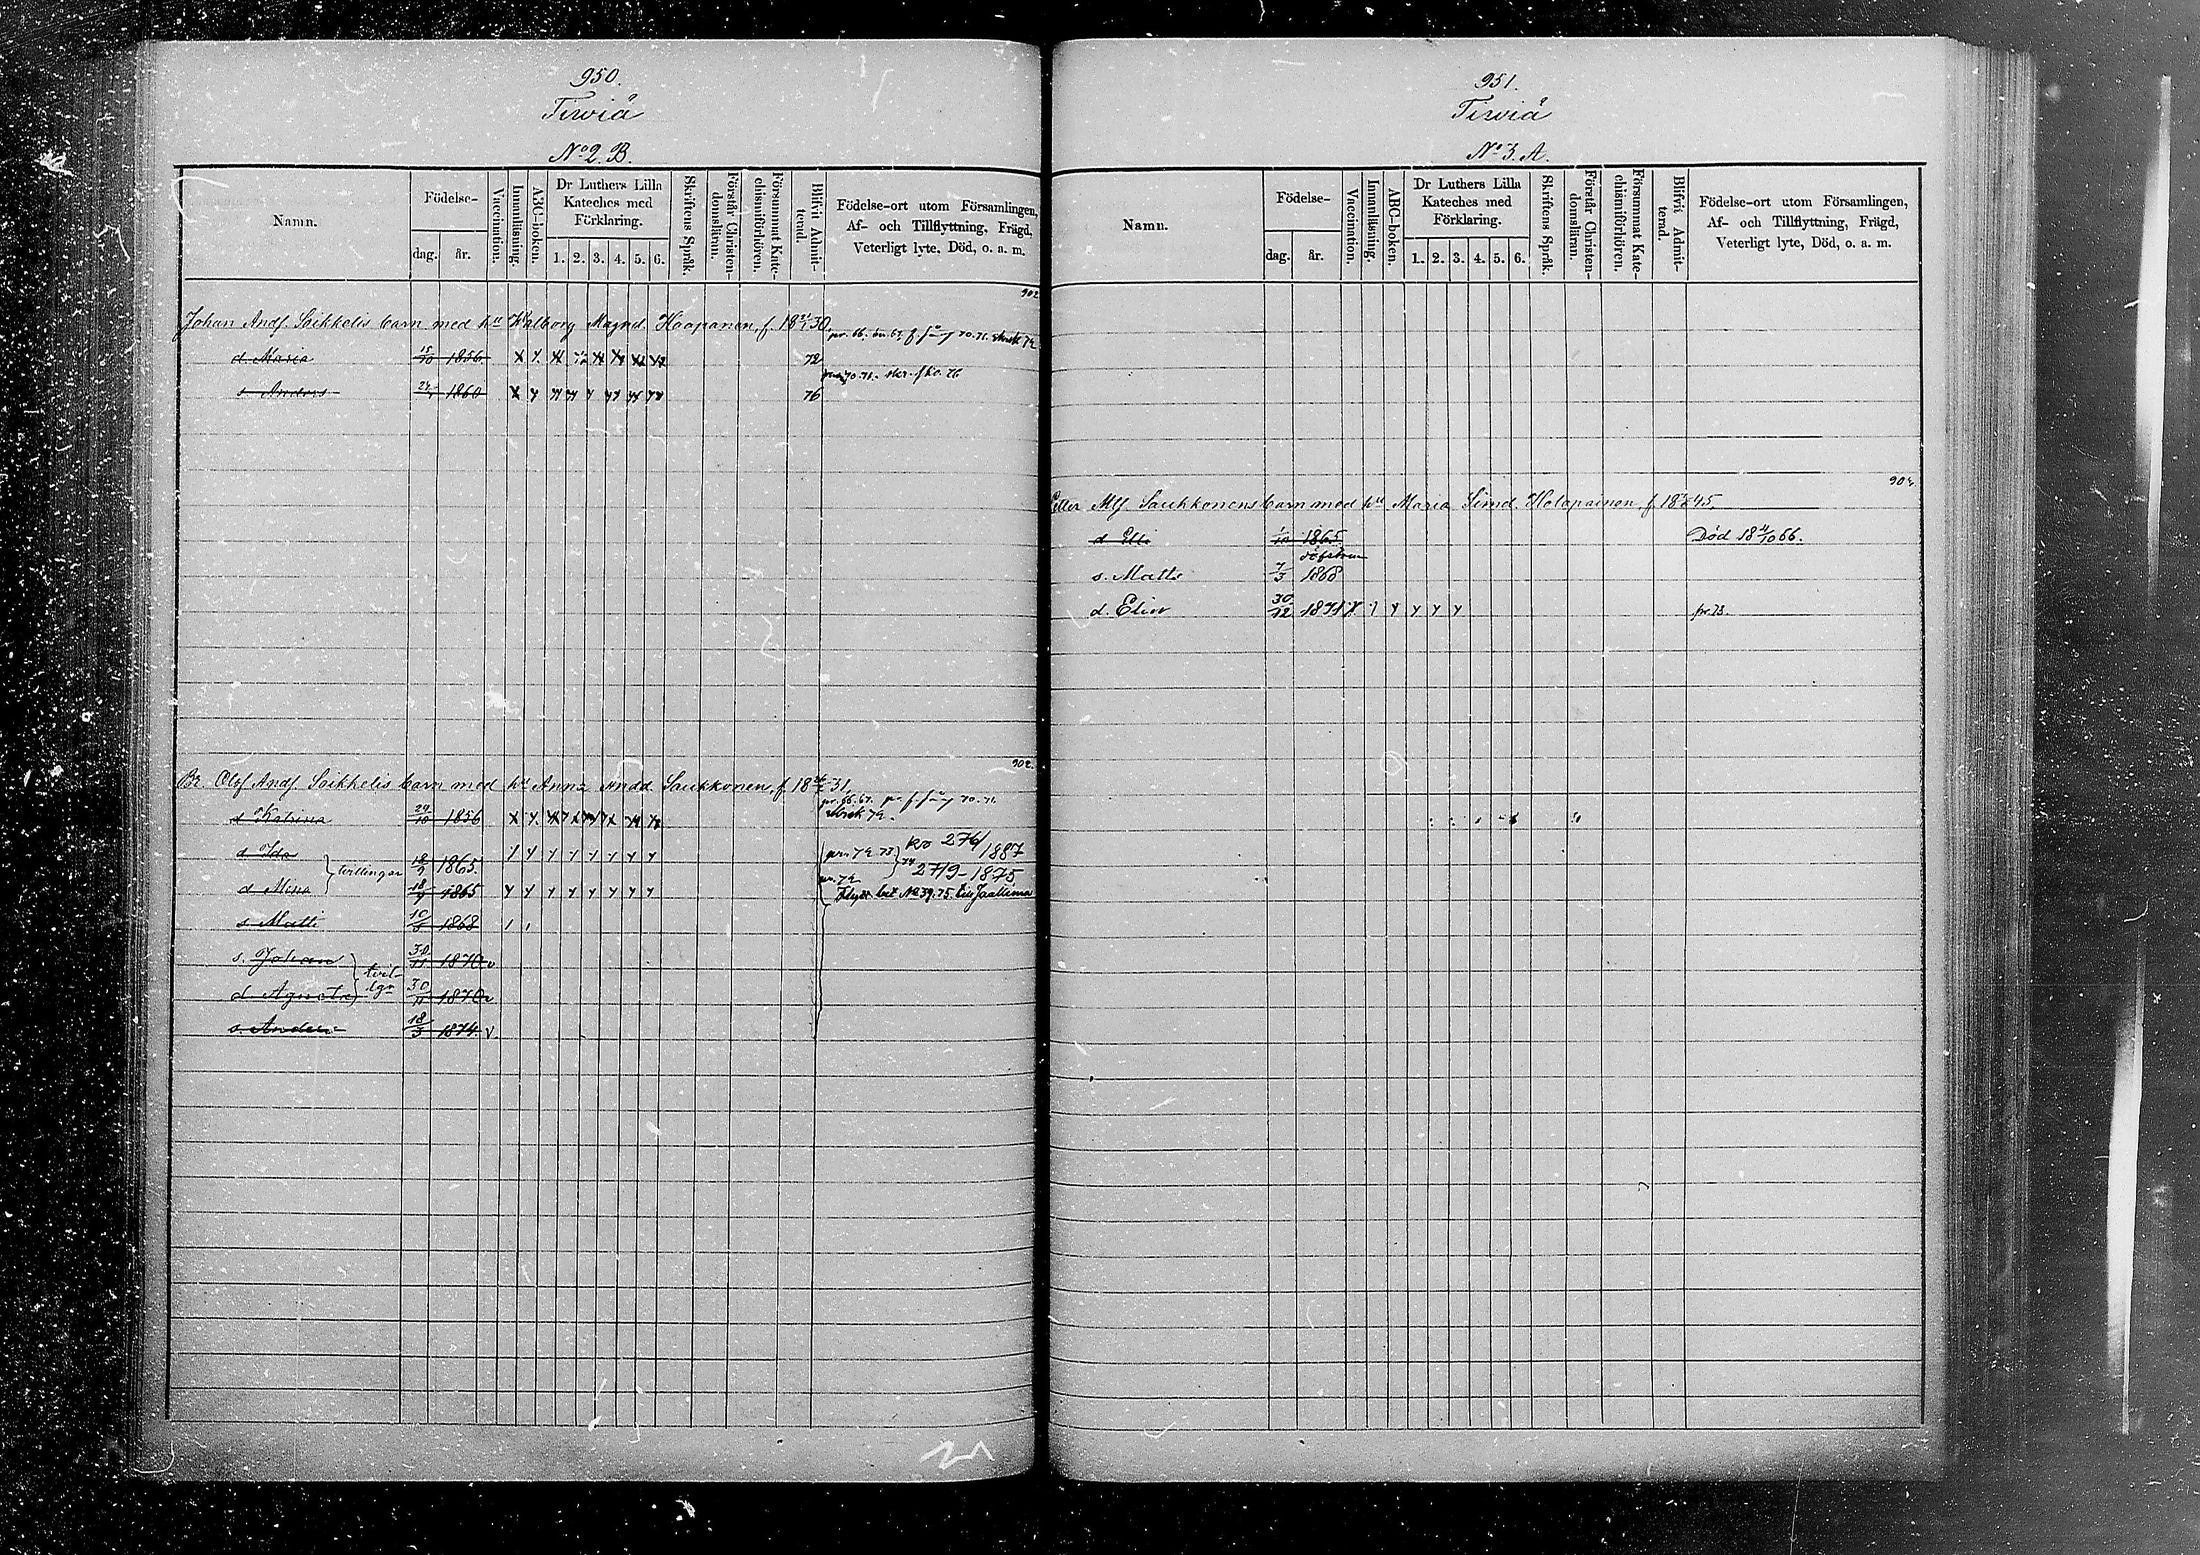 950.
Tirviä
No 2. B.
Namn.
Födelse-
dag.
år.
Vaccination.
Innanläsning.
ABC-boken.
Dr Luthers Lilla
Kateches med
Förklaring.
1. 2. 3. 4. 5. 6.
Skriftens Språk.
Förstår Christen-
domsläran.
Försummat Kate-
chismiförhören.
Blifvit Admit-
terad.
Födelse-ort utom Församlingen,
Af- och Tillflyttning, Frägd,
Veterligt lyte, Död, o. a. m.
902
Johan Andf. Soikkelis barn med hu Walborg Magnd. Haapanen, f. 18 30.
d. Maria 15/10 1856 72
s. Anders 1860 76
902.
Br. Olof Andf. Soikkelis barn med hu Anna Andd. Saukkonen, f. 18 31.
pr. 66. 67. 70. 71.
d. Katrina 29/10 1856
d. Ida 18/9 1865.
tvillingar
d. Mina 18/9 1865
pr. 72 73 276/1887
pr. 72 2719-1875
s. Matti 10/5 1868
s. Johan 30/11 1870 v
d. Agneta 30/11 1870 v
s. Anders 18/3 1874. v.
951.
Tirviä
No 3. A.
Namn.
Födelse-
dag.
år.
Vaccination.
Innanläsning.
ABC-boken.
Dr Luthers Lilla
Kateches med
Förklaring.
1. 2. 3. 4. 5. 6.
Skriftens Språk.
Förstår Christen-
domsläran.
Försummat Kate-
chismiförhören.
Blifvit Admit-
terad.
Födelse-ort utom Församlingen,
Af- och Tillflyttning, Frägd,
Veterligt lyte, Död, o. a. m.
Petter Mtf. Saukkonens barn med hu Maria Simd. Holopainen, f. 18 45.
d. Elli 1/10 1865. Död 18 4/10 66.
s. Matti 7/3 1868
d. Elin 30/12 1871 pr. 73.